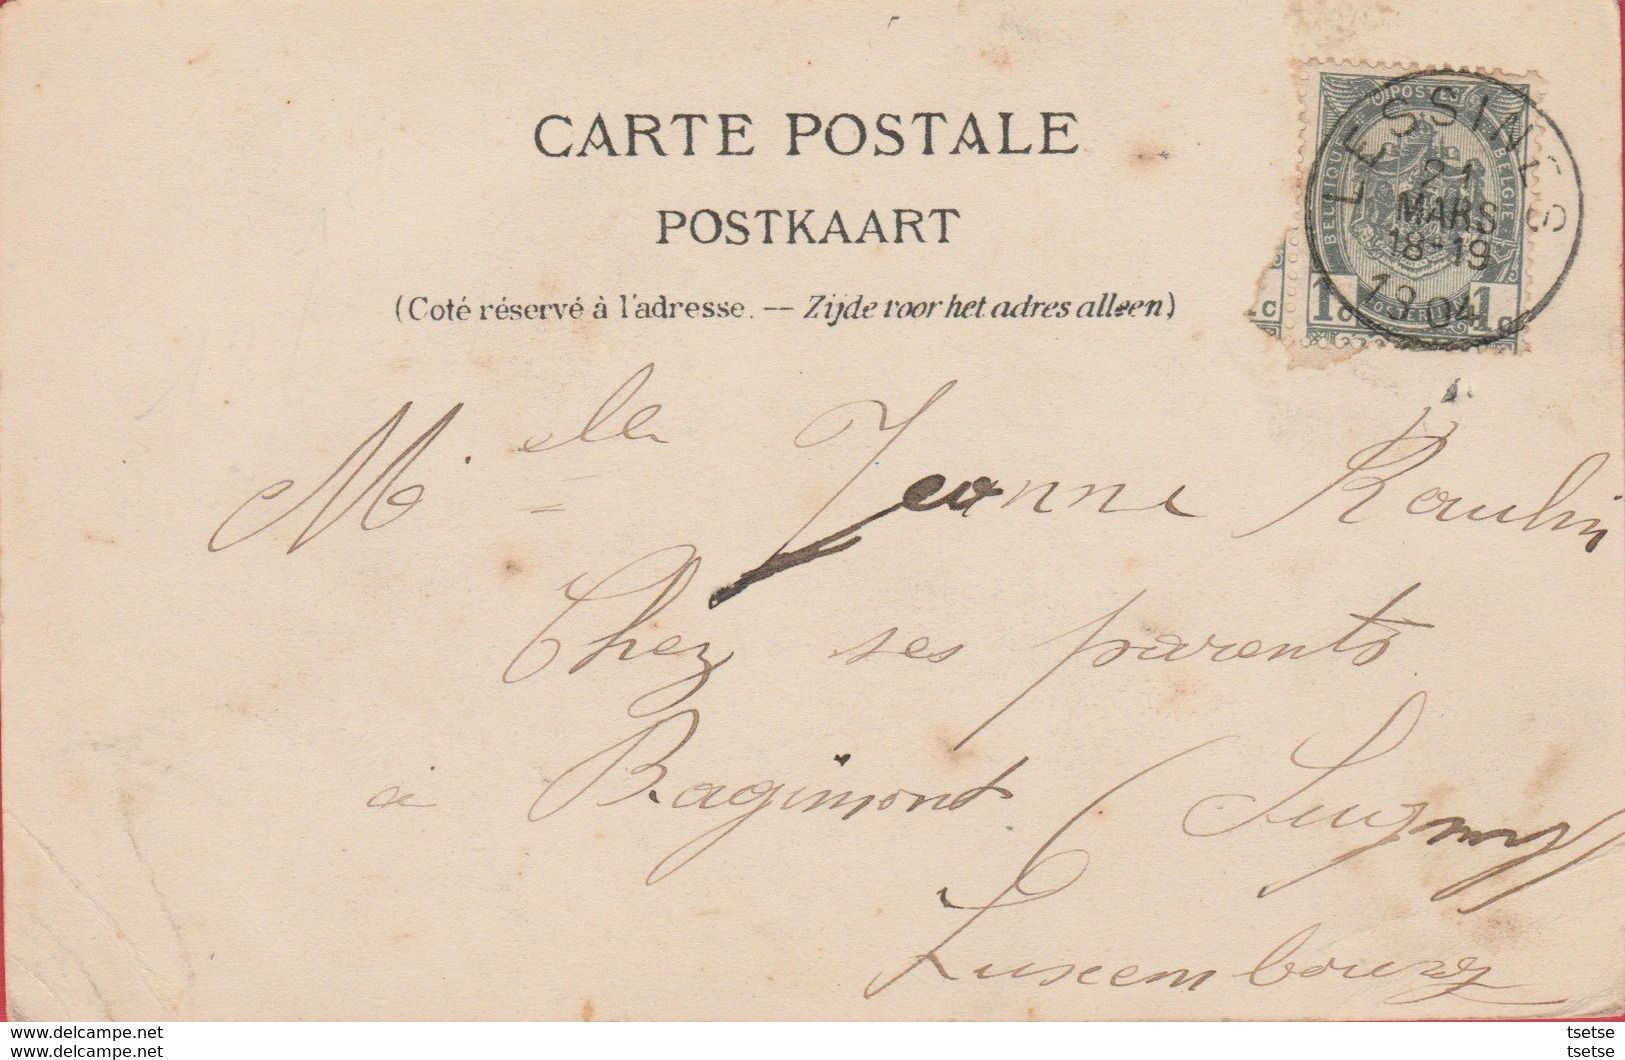 CARTE POSTALE
POSTKAART
(Coté réservé à l'adresse. — Zijde voor het adres alleen)
POSTES
BELGIQUE
BELGIË
1c 1c
1c
LESSINES
21
MARS
18-19
1904
Mlle Jeanne Raulin
Chez ses parents
à Bagimont (Sugny)
Luxembourg
www.delcampe.net
www.delcampe.net
tsetse
tsetse